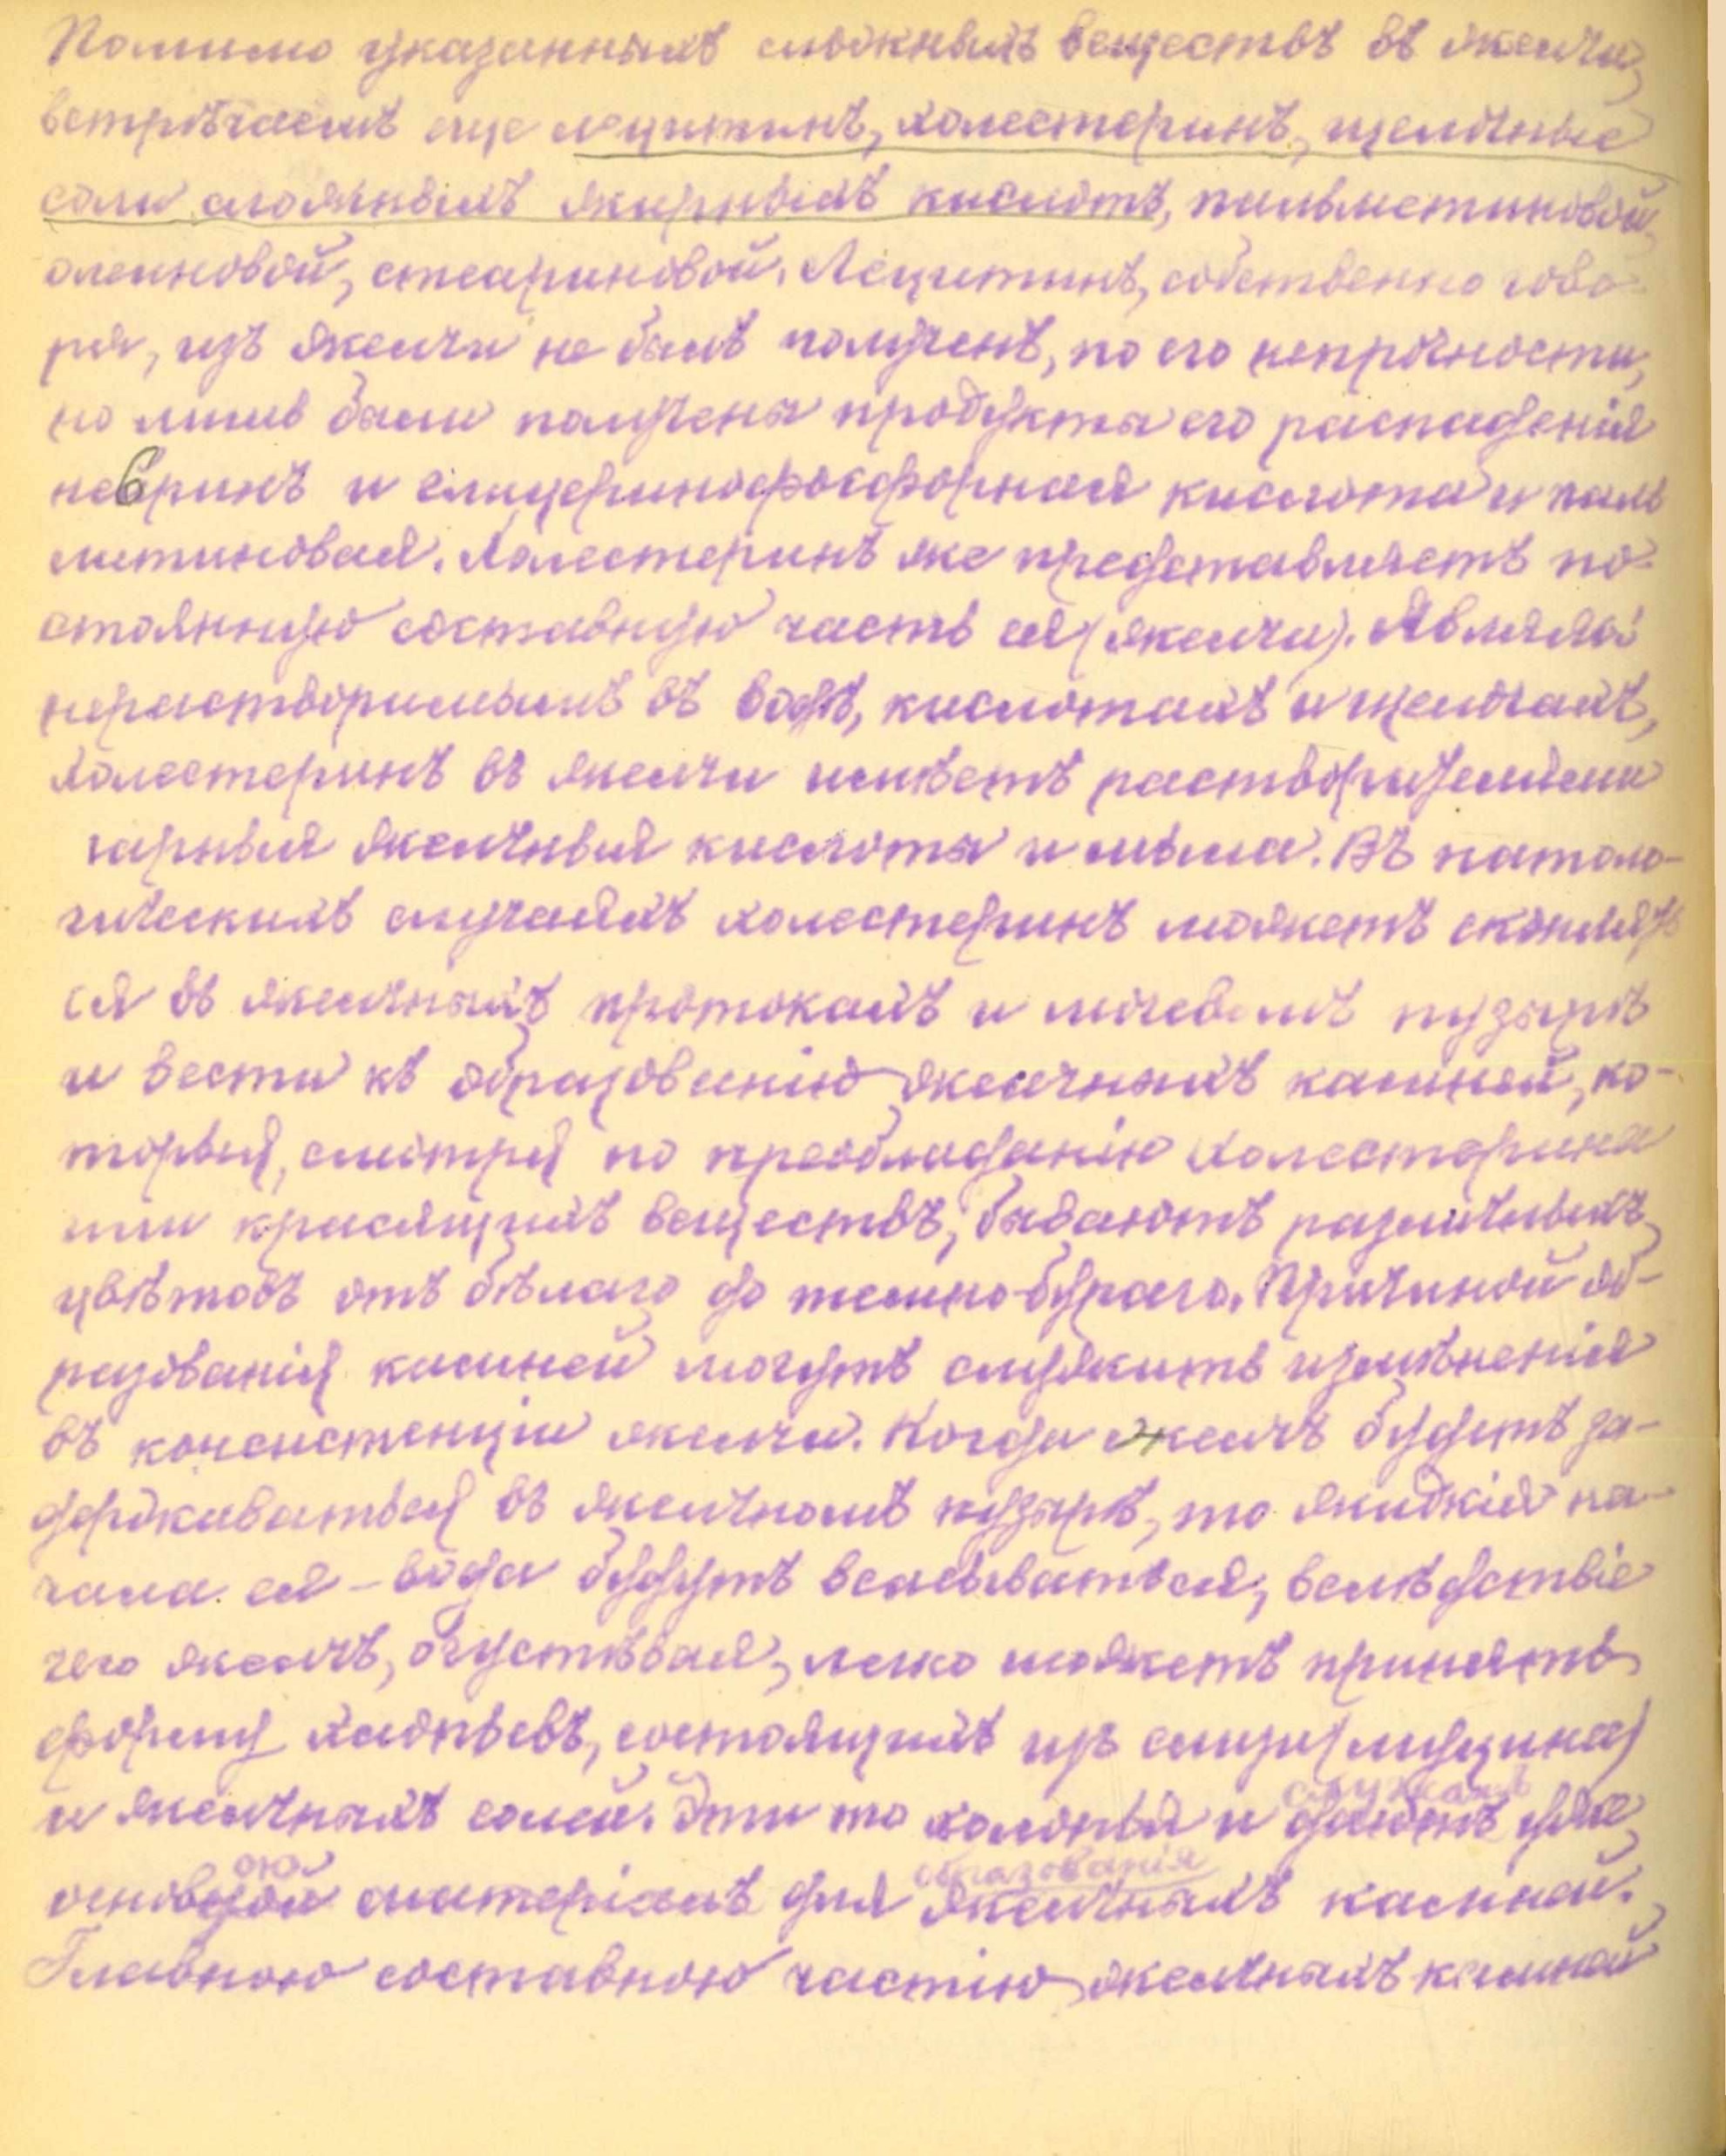 Помимо указанныхъ сложныхъ веществъ въ желчи,
встрѣчаемъ еще лецитинъ, холестеринъ, щелочные
соли сложныхъ жирныхъ кислотъ, пальметиновой,
олеиновой, стеариновой. Лецитинъ, собственно гово-
ря, изъ желчи не былъ полученъ, по его непрочности,
но лишь были получены продукты его распаденія
невринъ и глицеринофосфорная кислота и паль
митиновая. Холестеринъ же представляетъ по-
стоянную составную часть ея (желчи). Являясь
нерастворимымъ въ водѣ, кислотахъ и щелочахъ,
холестеринъ въ желчи имѣетъ растворителями
парныя желчныя кислоты и мыла. Въ патоло-
гическихъ случаяхъ холестеринъ можетъ скоплять
ся въ желчныхъ протокахъ и мочевомъ пузырѣ
и вести къ образованію желчныхъ камней, ко-
торыя, смотря по преобладанію холестерина
или красящихъ веществъ, бываютъ различныхъ
цвѣтовъ отъ бѣлаго до темно-бураго. Причиной об-
разованія камней могутъ служить измѣненія
въ консистенціи желчи. Когда желчь будетъ за-
держиваться въ желчномъ пузырѣ, то жидкія на-
чала ея – вода будутъ всасываться, вслѣдствіе
чего желчь, огустѣвая, легко можетъ принять
форму хлопьевъ, состоящихъ изъ слизи (муцина)
и желчныхъ солей. Эти то хлопья и служатъ
основою матеріалъ для образованія желчныхъ камней.
Главною составною частію желчныхъ камней